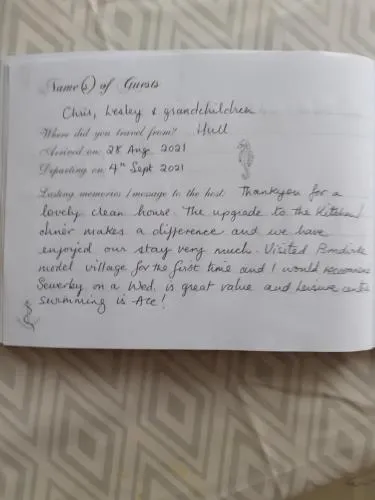 Name(s) of Guests
Chris, Lesley & grandchildren
Where did you travel from? Hull
Arrived on: 28 Aug 2021
Departing on: 4th Sept 2021
Lasting memories / message to the host: Thankyou for a
lovely clean house. The upgrade to the Kitchen/
diner makes a difference and we have
enjoyed our stay very much. Visited
model village for the first time and I would
Sewerby on a Wed, is great value and Leisure centre
swimming is Ace!